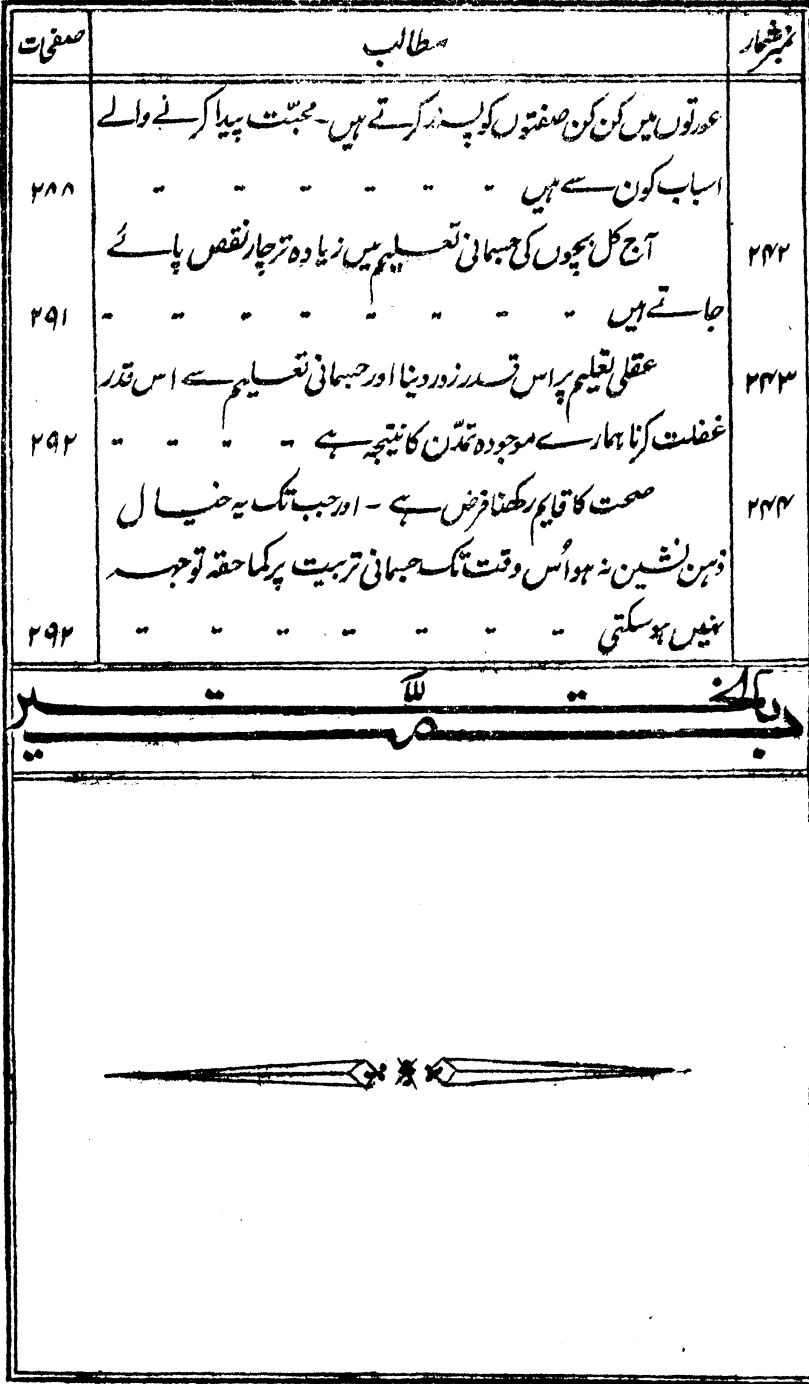 نمبر شمار مطالب صفحات
عورتوں میں کن کن صفتوں کو پسند کرتے ہیں۔ محبّت پیدا کرنے والے
اسباب کون سے ہیں ۲۸۸
۲۴۲ آج کل بچوں کی جسمانی تعلیم میں زیادہ تر چار نقص پائے
جاتے ہیں ۲۹۱
۲۴۳ عقلی تعلیم پر اس قدر زور دینا اور جسمانی تعلیم سے اس قدر
غفلت کرنا ہمارے موجودہ تمدّن کا نتیجہ ہے ۲۹۲
۲۴۴ صحت کا قایم رکھنا فرض ہے - اور جب تک یہ خیال
ذہن نشین نہ ہو اُس وقت تک جسمانی تربیت پر کما حقہ توجہ
نہیں ہو سکتی ۲۹۲
تمت بالخیر